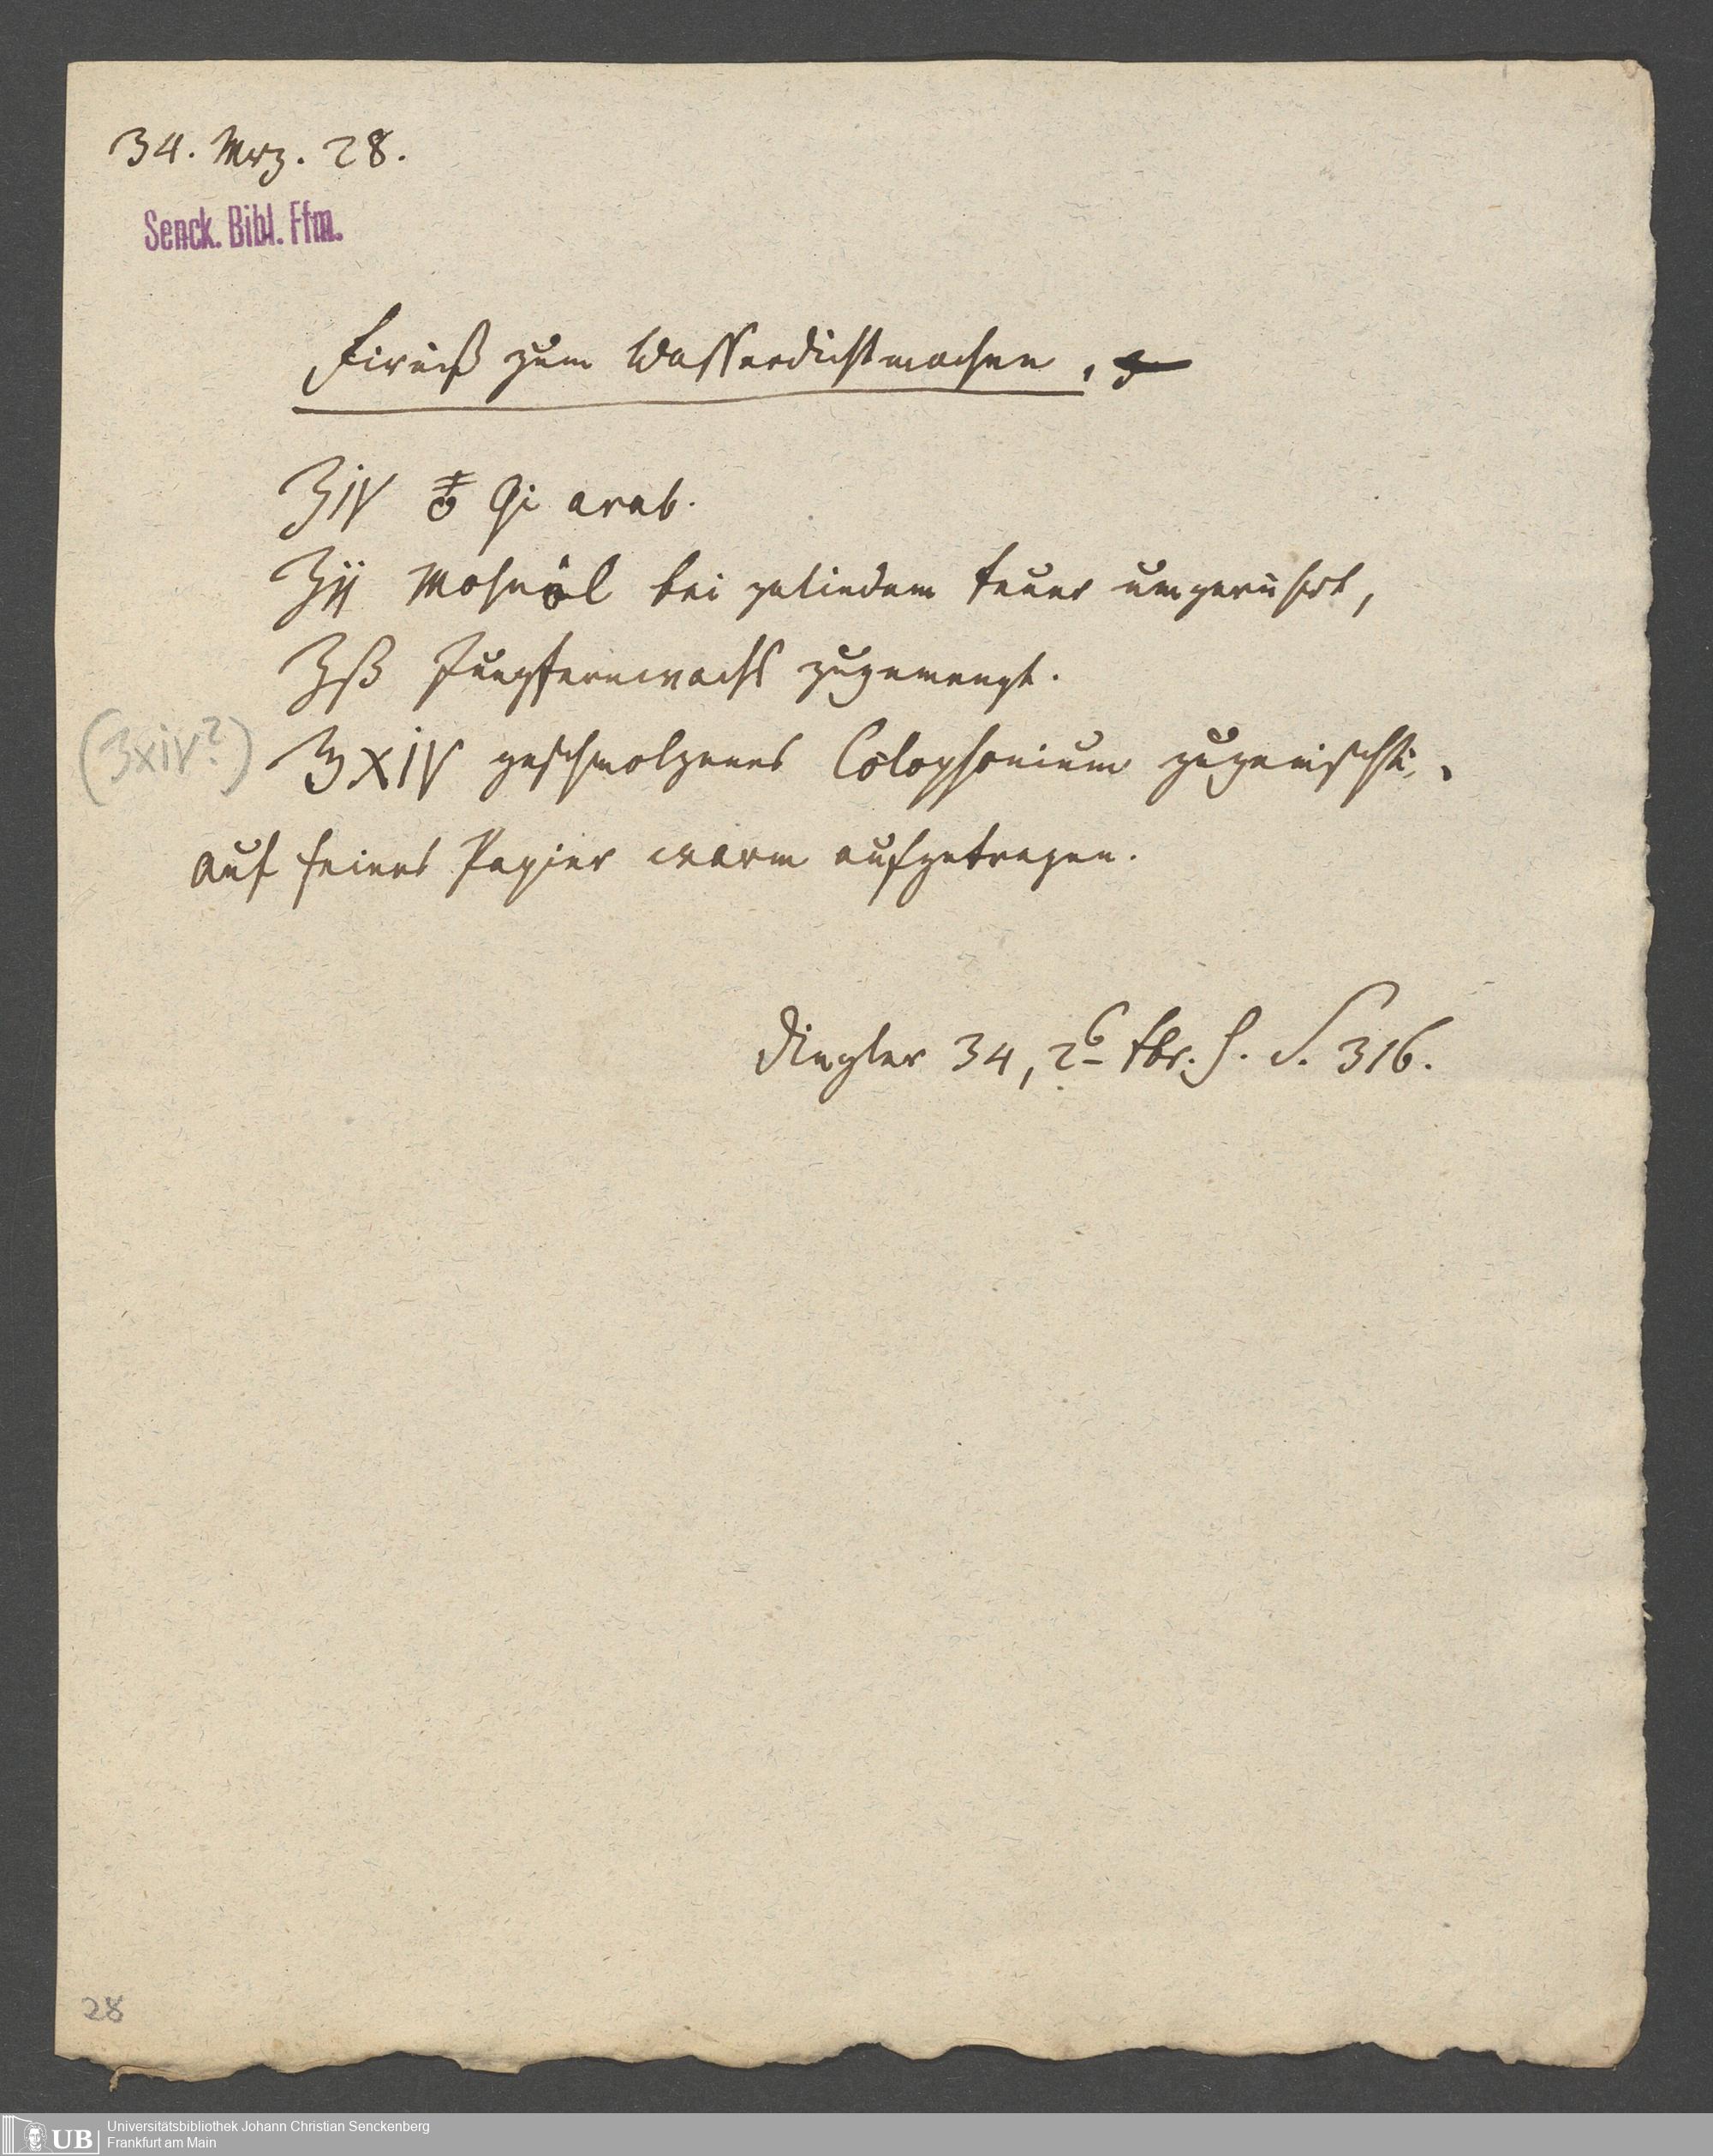 34. Mrz. 28.
Senck. Bibl. Ffm.
Firniß zum Wasserdichtmachen.
℥IV Gi arab.
℥ij Mohnöl bei gelindem Feuer umgerührt,
℥ß Jungfernwachs zugemengt.
(ʒxiv?) ʒXIV geschmolzenes Colophonium zugemischt.
Auf feines Papier warm aufgetragen.
Dingler 34, 2 Fbr. H. S. 316.
28
UB Universitätsbibliothek Johann Christian Senckenberg
Frankfurt am Main